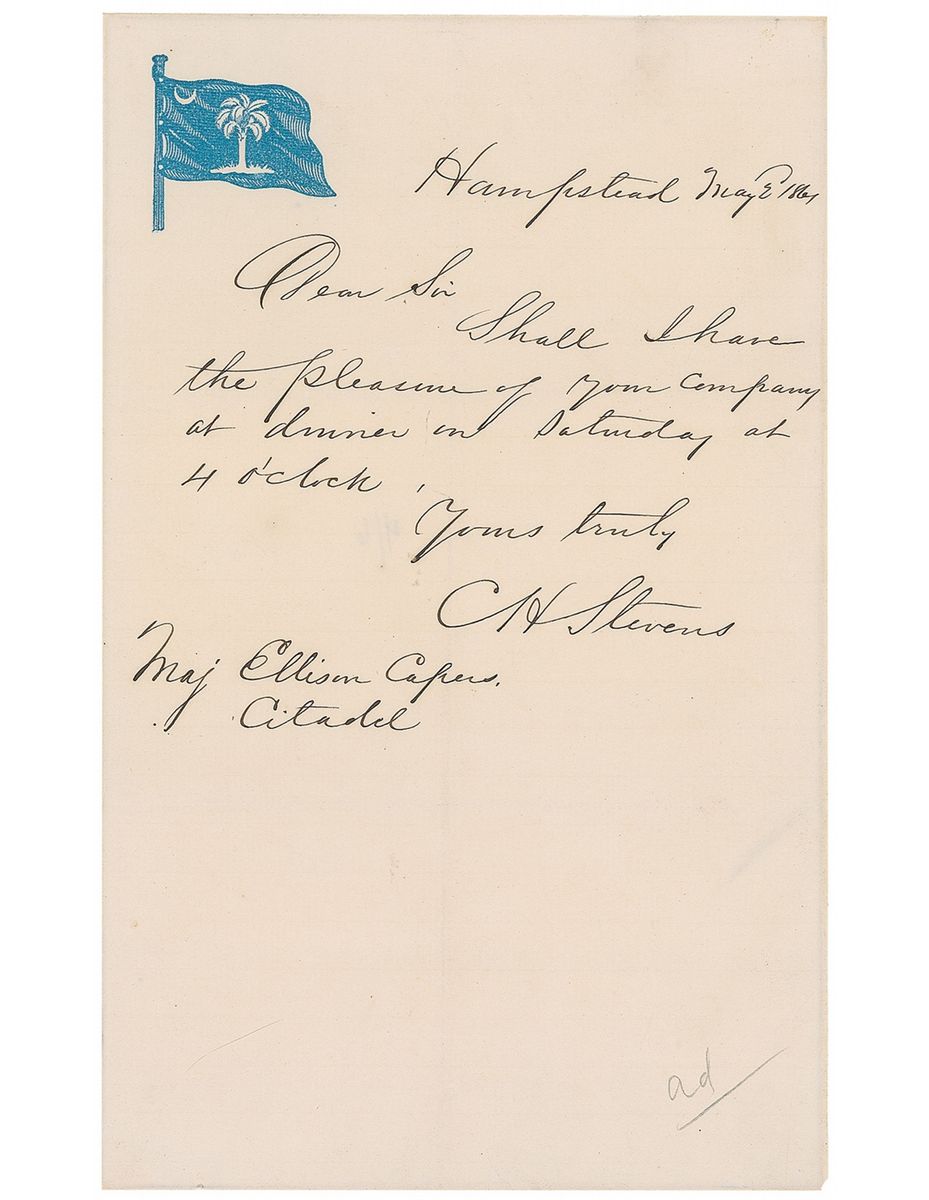 Hampstead May 2 1861
Dear Sir
Shall I have
the pleasure of your company
at dinner on Saturday at
4 o'clock
Yours truly
CH Stevens
Maj Ellison Capers.
Citadel
ad